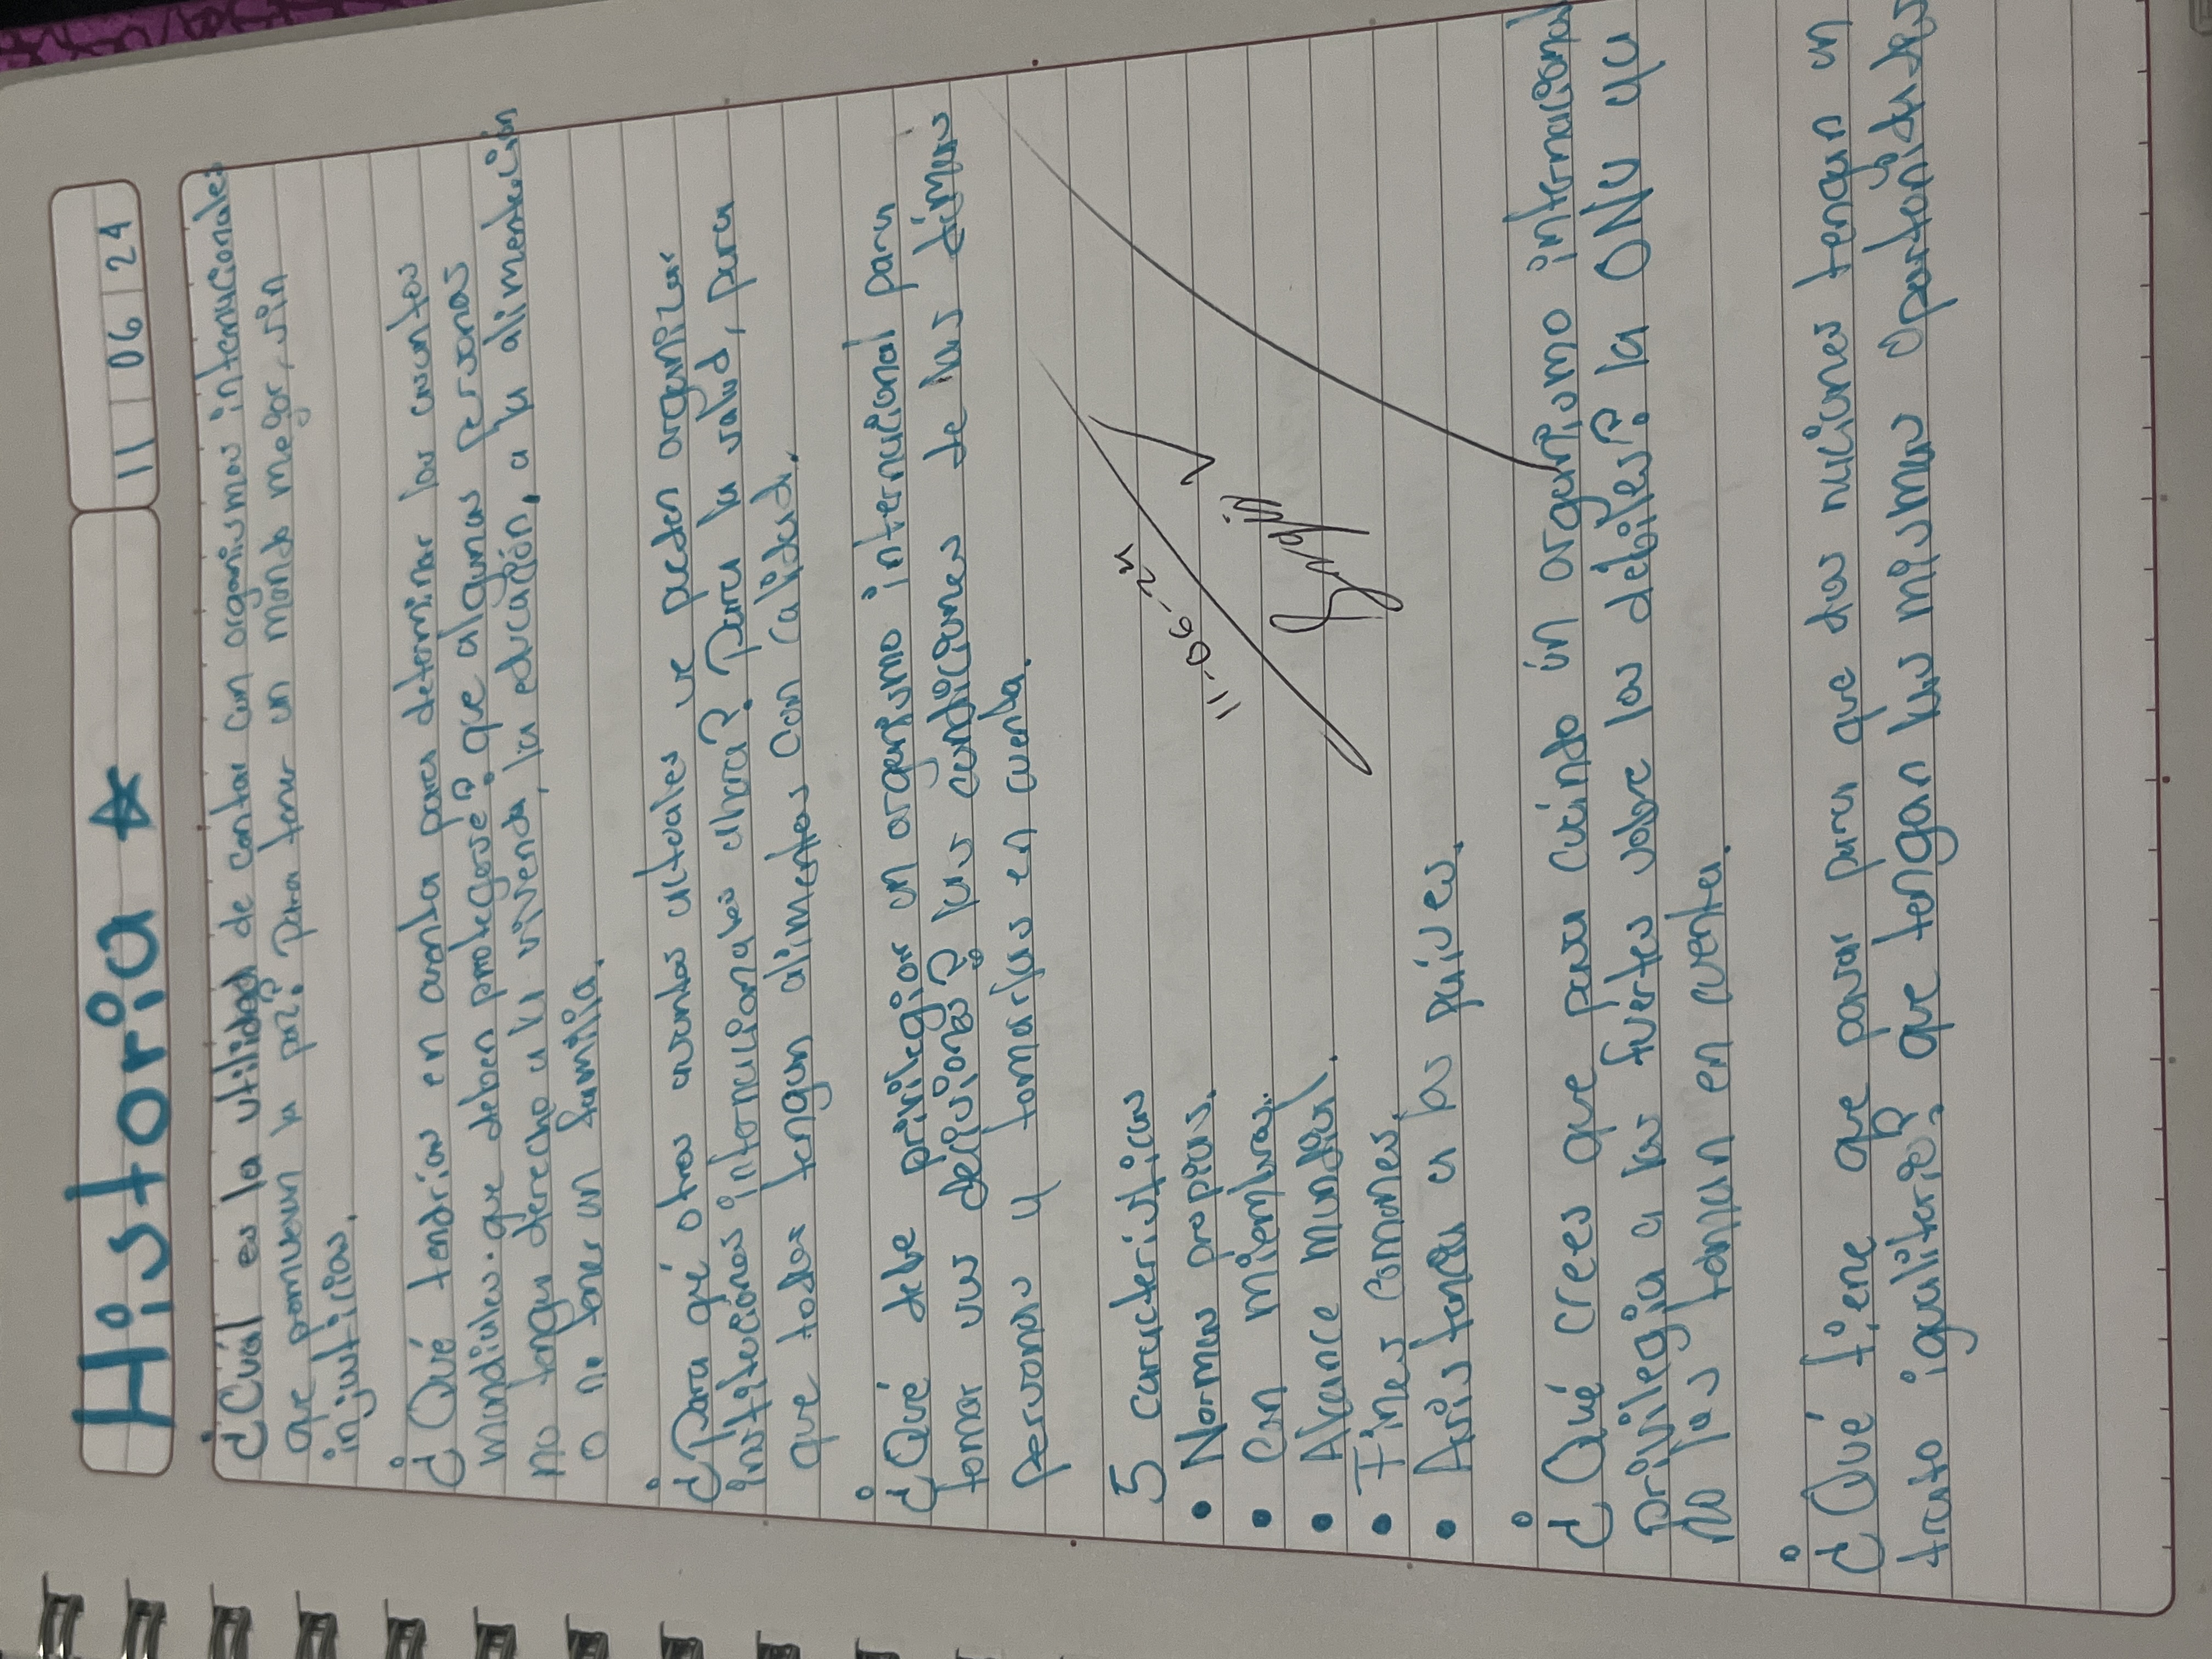 Historia
11 06 24
¿Cuál es la utilidad de contar con organismos internacionales
que promuevan la paz? Para tener un mundo mejor, sin
injusticias.
¿Qué tendrías en cuenta para determinar los asuntos
mundiales que deben protegerse? que algunas personas
no tengan derecho a la vivienda, la educación, a la alimentación
o no tener un familia.
¿Para qué otros asuntos actuales se pueden organizar
instituciones internacionales ahora? Para la salud, para
que todos tengan alimentos con calidad.
¿Qué debe privilegiar un organismo internacional para
tomar sus desiciones? las condiciones de las demas
personas y tomarlas en cuenta.
5 caracteristicas
• Normas propias.
• Con miembros.
• Alcance mundial.
• Fines comunes.
• Asistencia a los países.
11-06-24
¿Qué crees que pasa cuándo un organismo internacional
privilegia a los fuertes sobre los débiles? la ONU que
no las toman en cuenta.
¿Qué tiene que pasar para que dos naciones tengan un
trato igualiterio? que tengan las mismas oportunidades